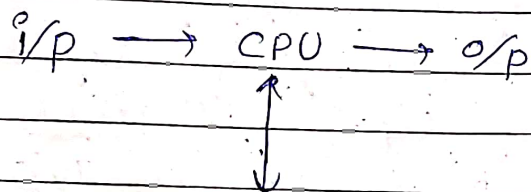 i/p → CPU → o/p